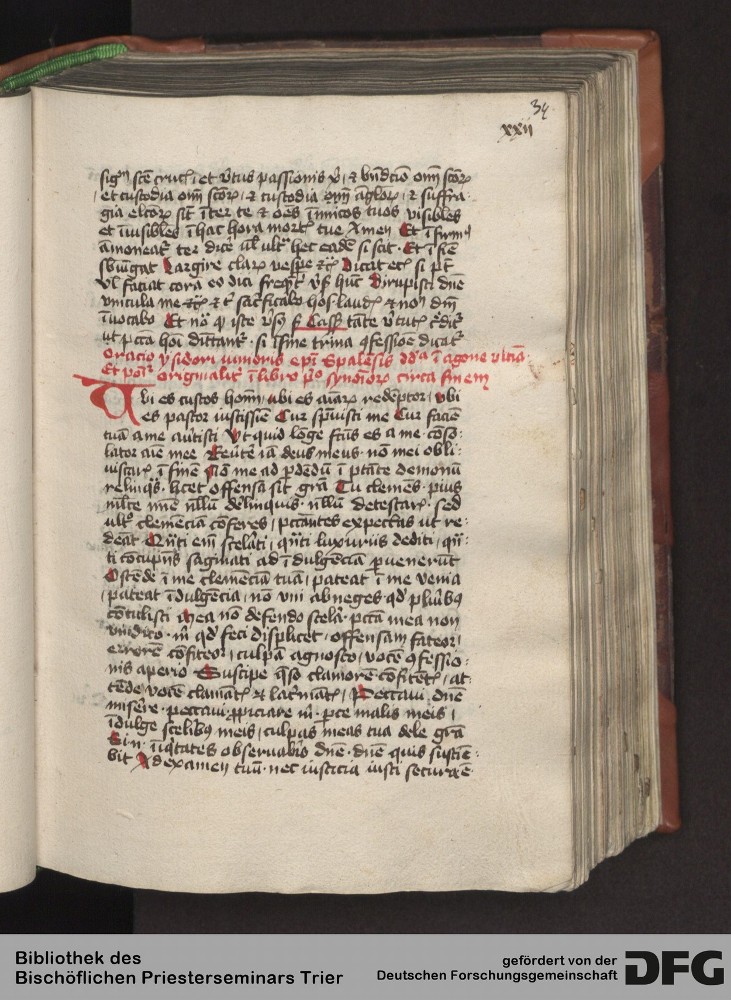 34
xxij
sigm scē cruc, et v̄tus passionis xi, et bn̄dictō om̄ scōꝝ
et custodia om̄ scōꝝ, et custodia om̄ āgloꝝ, et suffra
gia elcōꝝ sit īter te et oēs īimicos tuos visibiles
et īuisibiles ī hac hora mort tue Amen Et īfirmꝰ
amoneat ter dice vl vltꝰ hec eadē si scit. Et ī sīe
sb̄iūgat Largire claꝝ vespe etc Dicat etc si pt
vl faciat corā eo dici freqt v̄s hūc Dirupisti dn̄e
vincula me etc et t sacficabo hos laud et nom dn̄i
īuocabo Et no ꝙ iste v̄sꝰ s Cass tāte v̄tut cdit
ut pctā hoī dittant si ī fine trina ꝯfessioe dicat
Oracio ysidori iunioris epī Spalēsis ī agone
Et originalit ī libro pº synonōꝝ circa finem
Vbi es custos homī, ubi es aīaꝝ redēptor, vbi
es pastor iustissīe Cur sp̄uisti me Cur faciē
tuā a me au̇tisti Vt quid lōge fcūs es a me cōso
lator aīe mee Reūte iā deus meus. nō mei obli
uiscaꝝ ī finē Nō me ad pdēdū ī ptāte demonū
relinqs. licet offensā sit grā Tu clemēs. pius
mlte mīe nllū delinquis. nllū detestaꝝ. sed
vltº clemēciā cōferes, pctāntes expectas ut re
deāt Qn̄ti em̄ scelāti, qn̄ti luxuriis dediti, qn̄
ti cōcupīis saginati ad īdulgēciā puenerūt
Ostēde ī me clemēciā tuā, pateat ī me venia
pateat īdulgēcia, nō vni abneges. qd pluribꝫ
cōtulisti Mea nō defendo scela. pctā mea non
vindico. m qd feci displicet, offensam fateor,
errorē cōfiteor, culpā agnosco, vocē ꝯfessio
nis aperio Suscipe qso clamorē cōfitēt, at
tēde vocē clamāt et lacrimāt, Peccaui dn̄e
misere. peccaui. ppiciare m. pce malis meis,
īdulge scelibꝫ meis, culpas meas tua dele grā
Si n. īiqtates obseruabis dn̄e. dn̄e quis sustīe
bit Ad examen tuū. nec iusticia iusti secura ē
Bibliothek des
Bischöflichen Priesterseminars Trier
gefördert von der
Deutschen Forschungsgemeinschaft
DFG